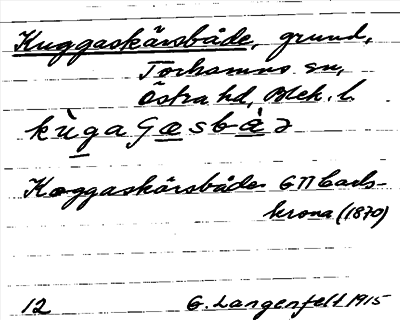 Kuggaskärsbåde, grund,
Torhamns sn,
Östra hd, Blek. l.
kùga Gæsbàд
Koggaskärsbåde GTT Carls-
krona (1870)
12 G. Langenfelt 1915